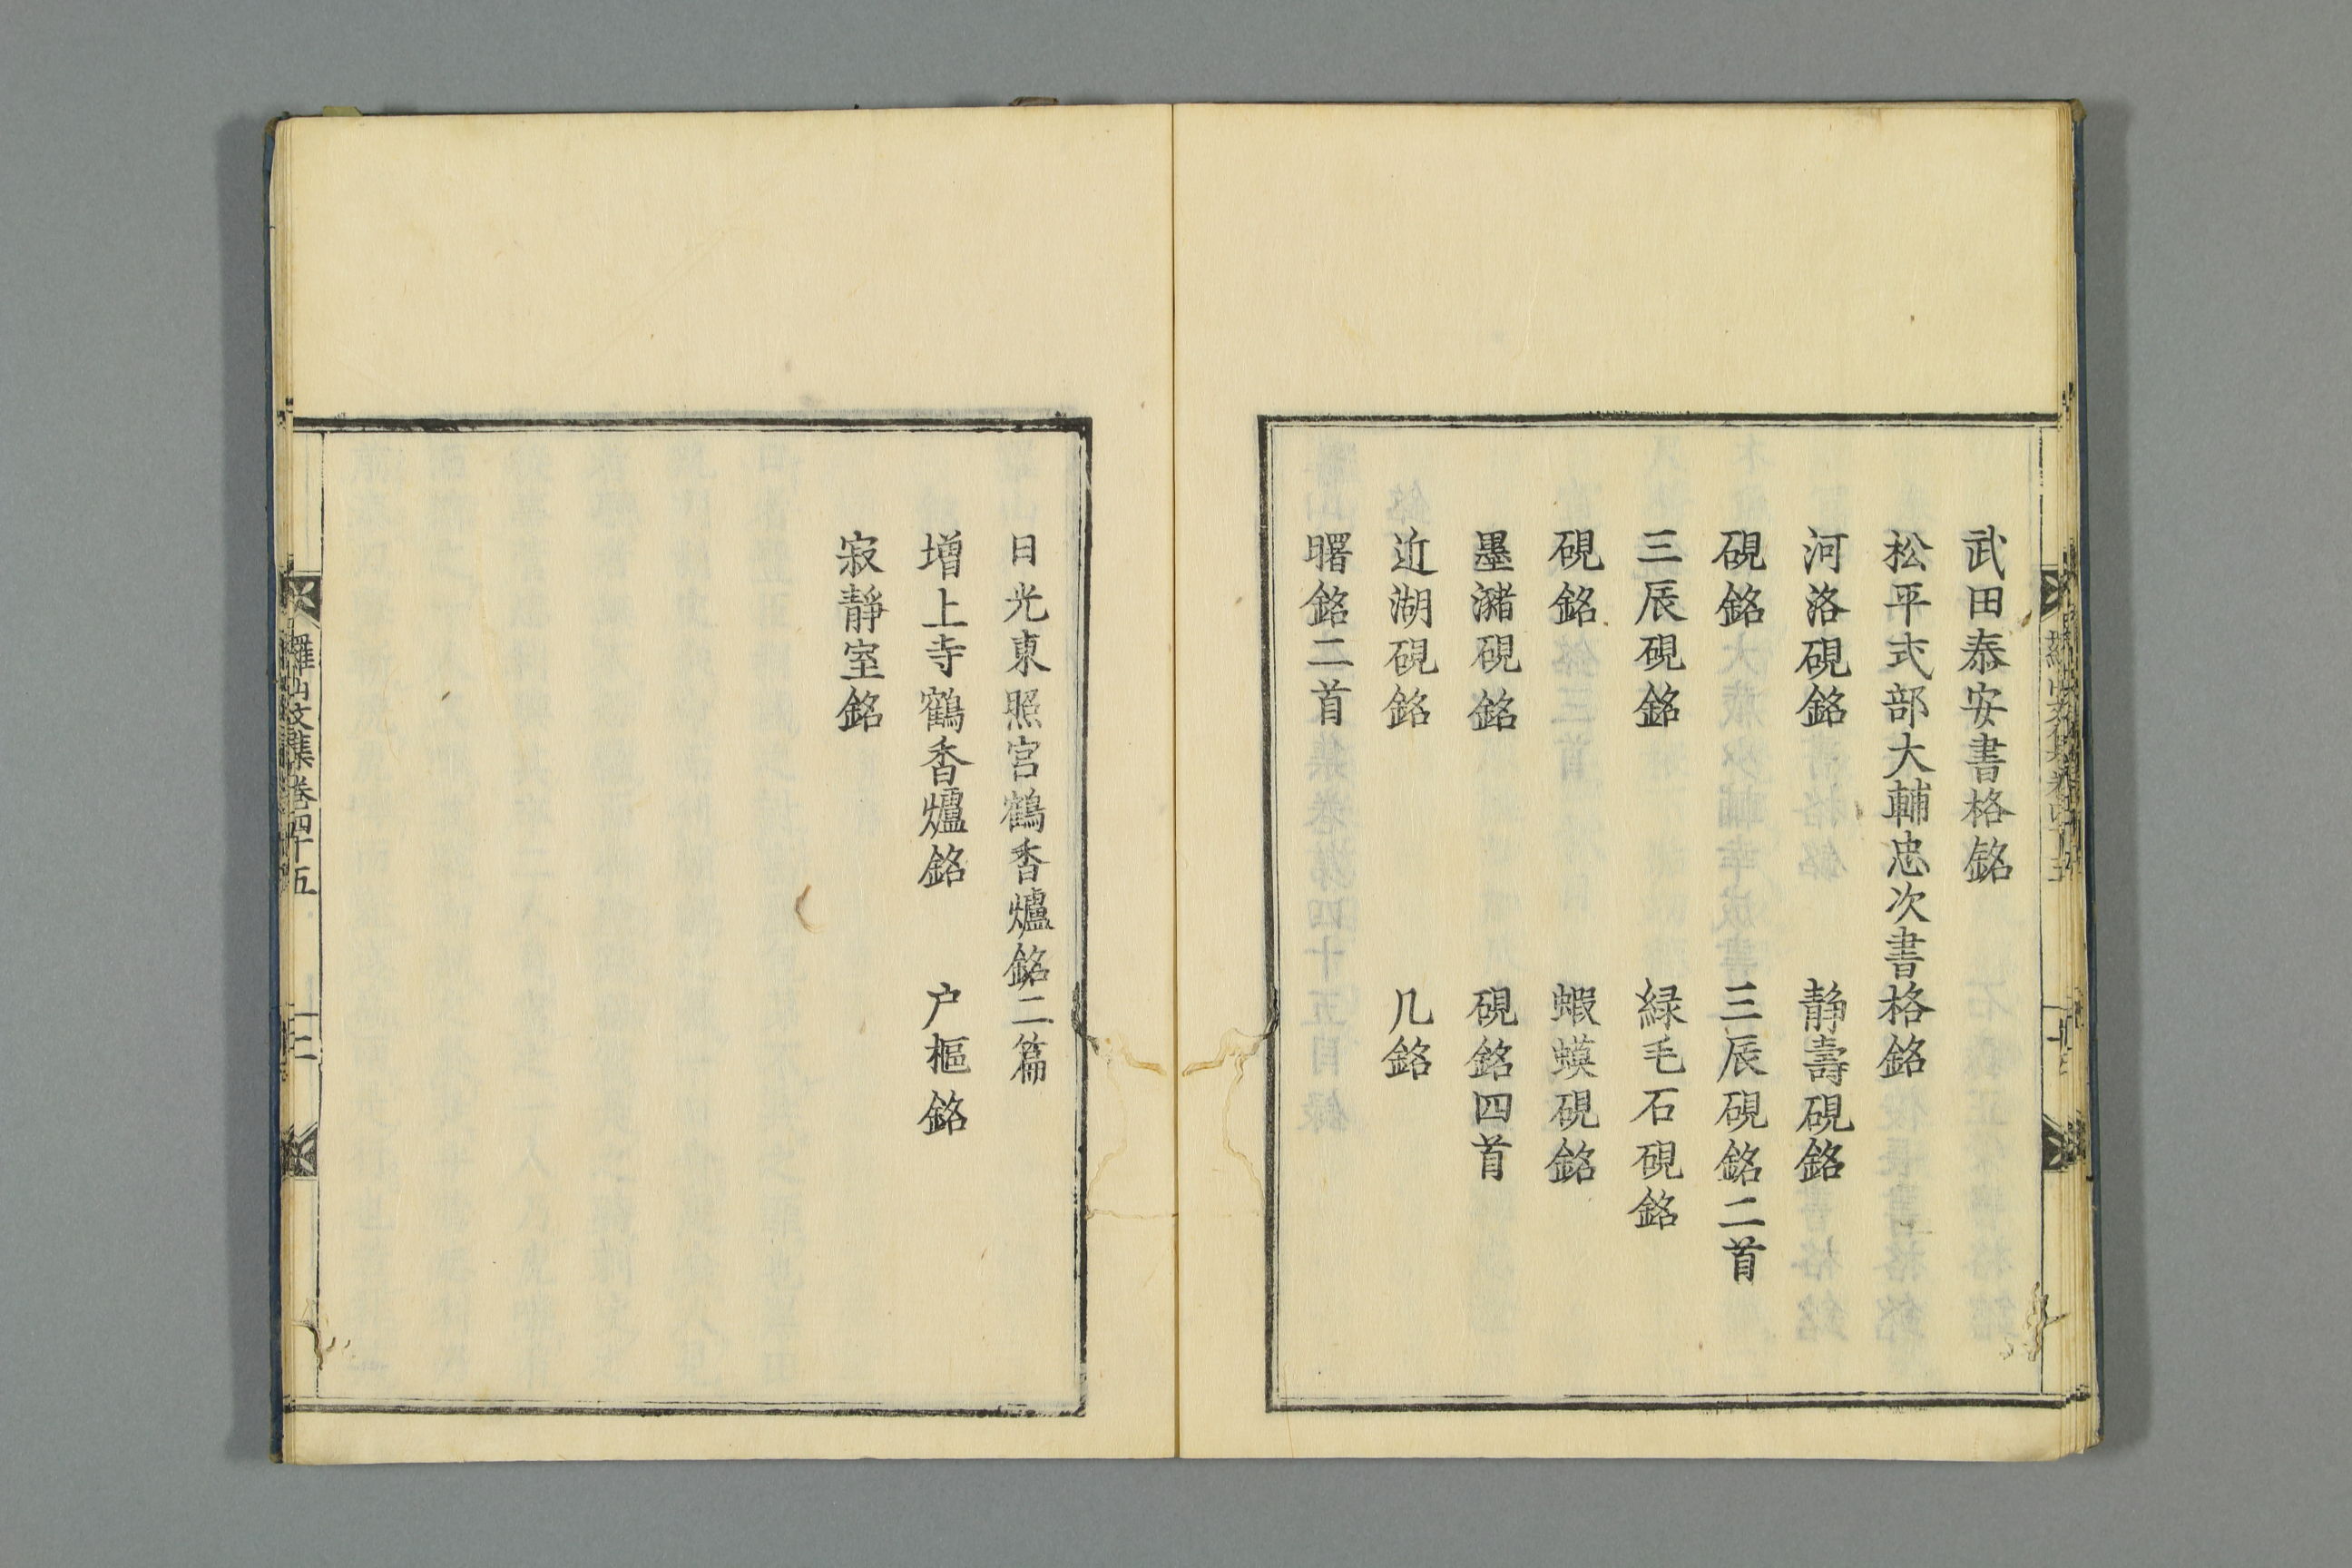 武田泰安書格銘
松平式部大輔忠次書格銘
河洛硯銘　静壽硯銘
硯銘　三辰硯銘二首
三辰硯銘　緑毛石硯銘
硯銘　蝦蟆硯銘
墨瀦硯銘　硯銘四首
近湖硯銘　几銘
曙銘二首
日光東照宮鶴香爐銘二篇
増上寺鶴香爐銘　户樞銘
寂靜室銘
羅山文集卷四十五